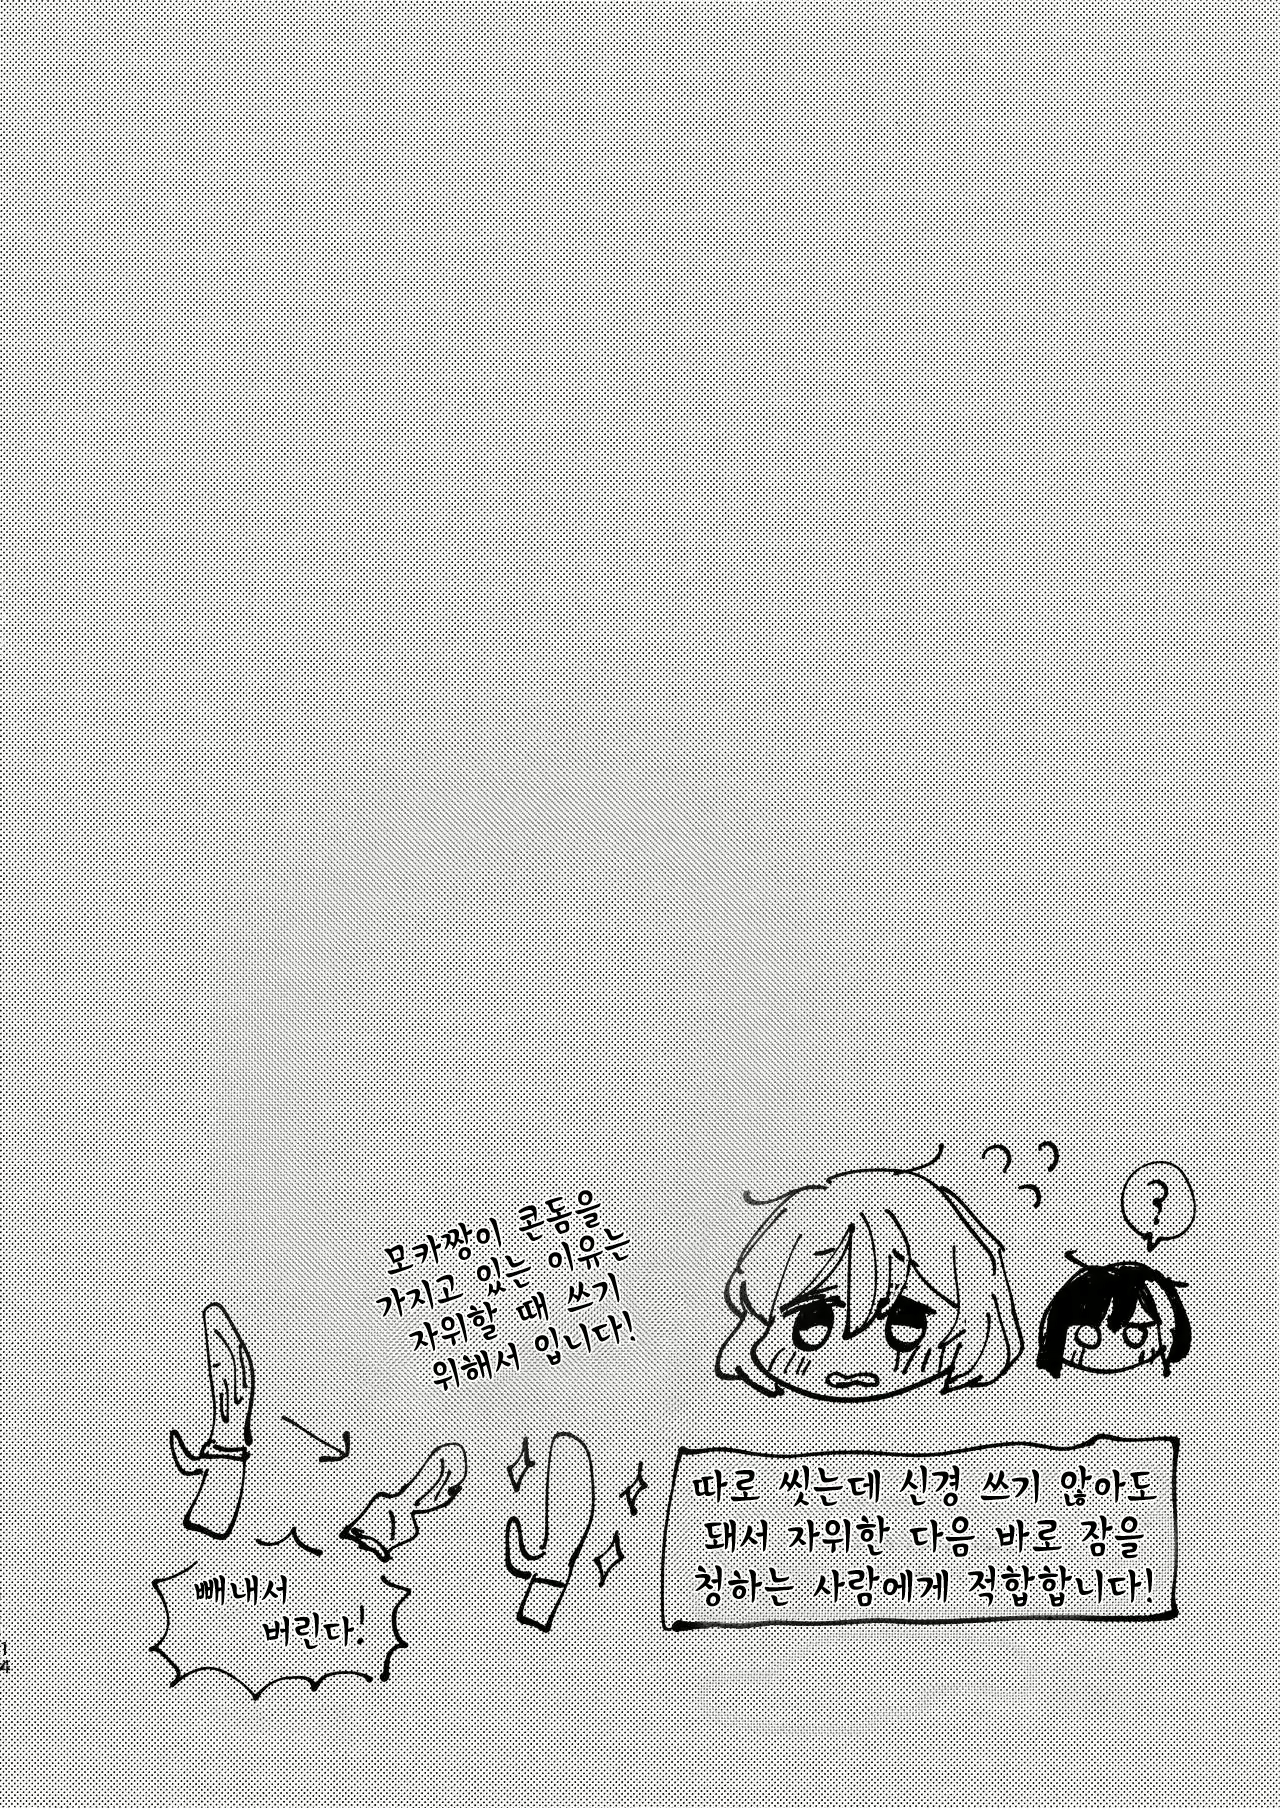 ?
모카짱이 콘돔을
가지고 있는 이유는
자위할 때 쓰기
위해서 입니다!
따로 씻는데 신경 쓰기 않아도
돼서 자위한 다음 바로 잠을
청하는 사람에게 적합합니다!
빼내서
버린다!
14